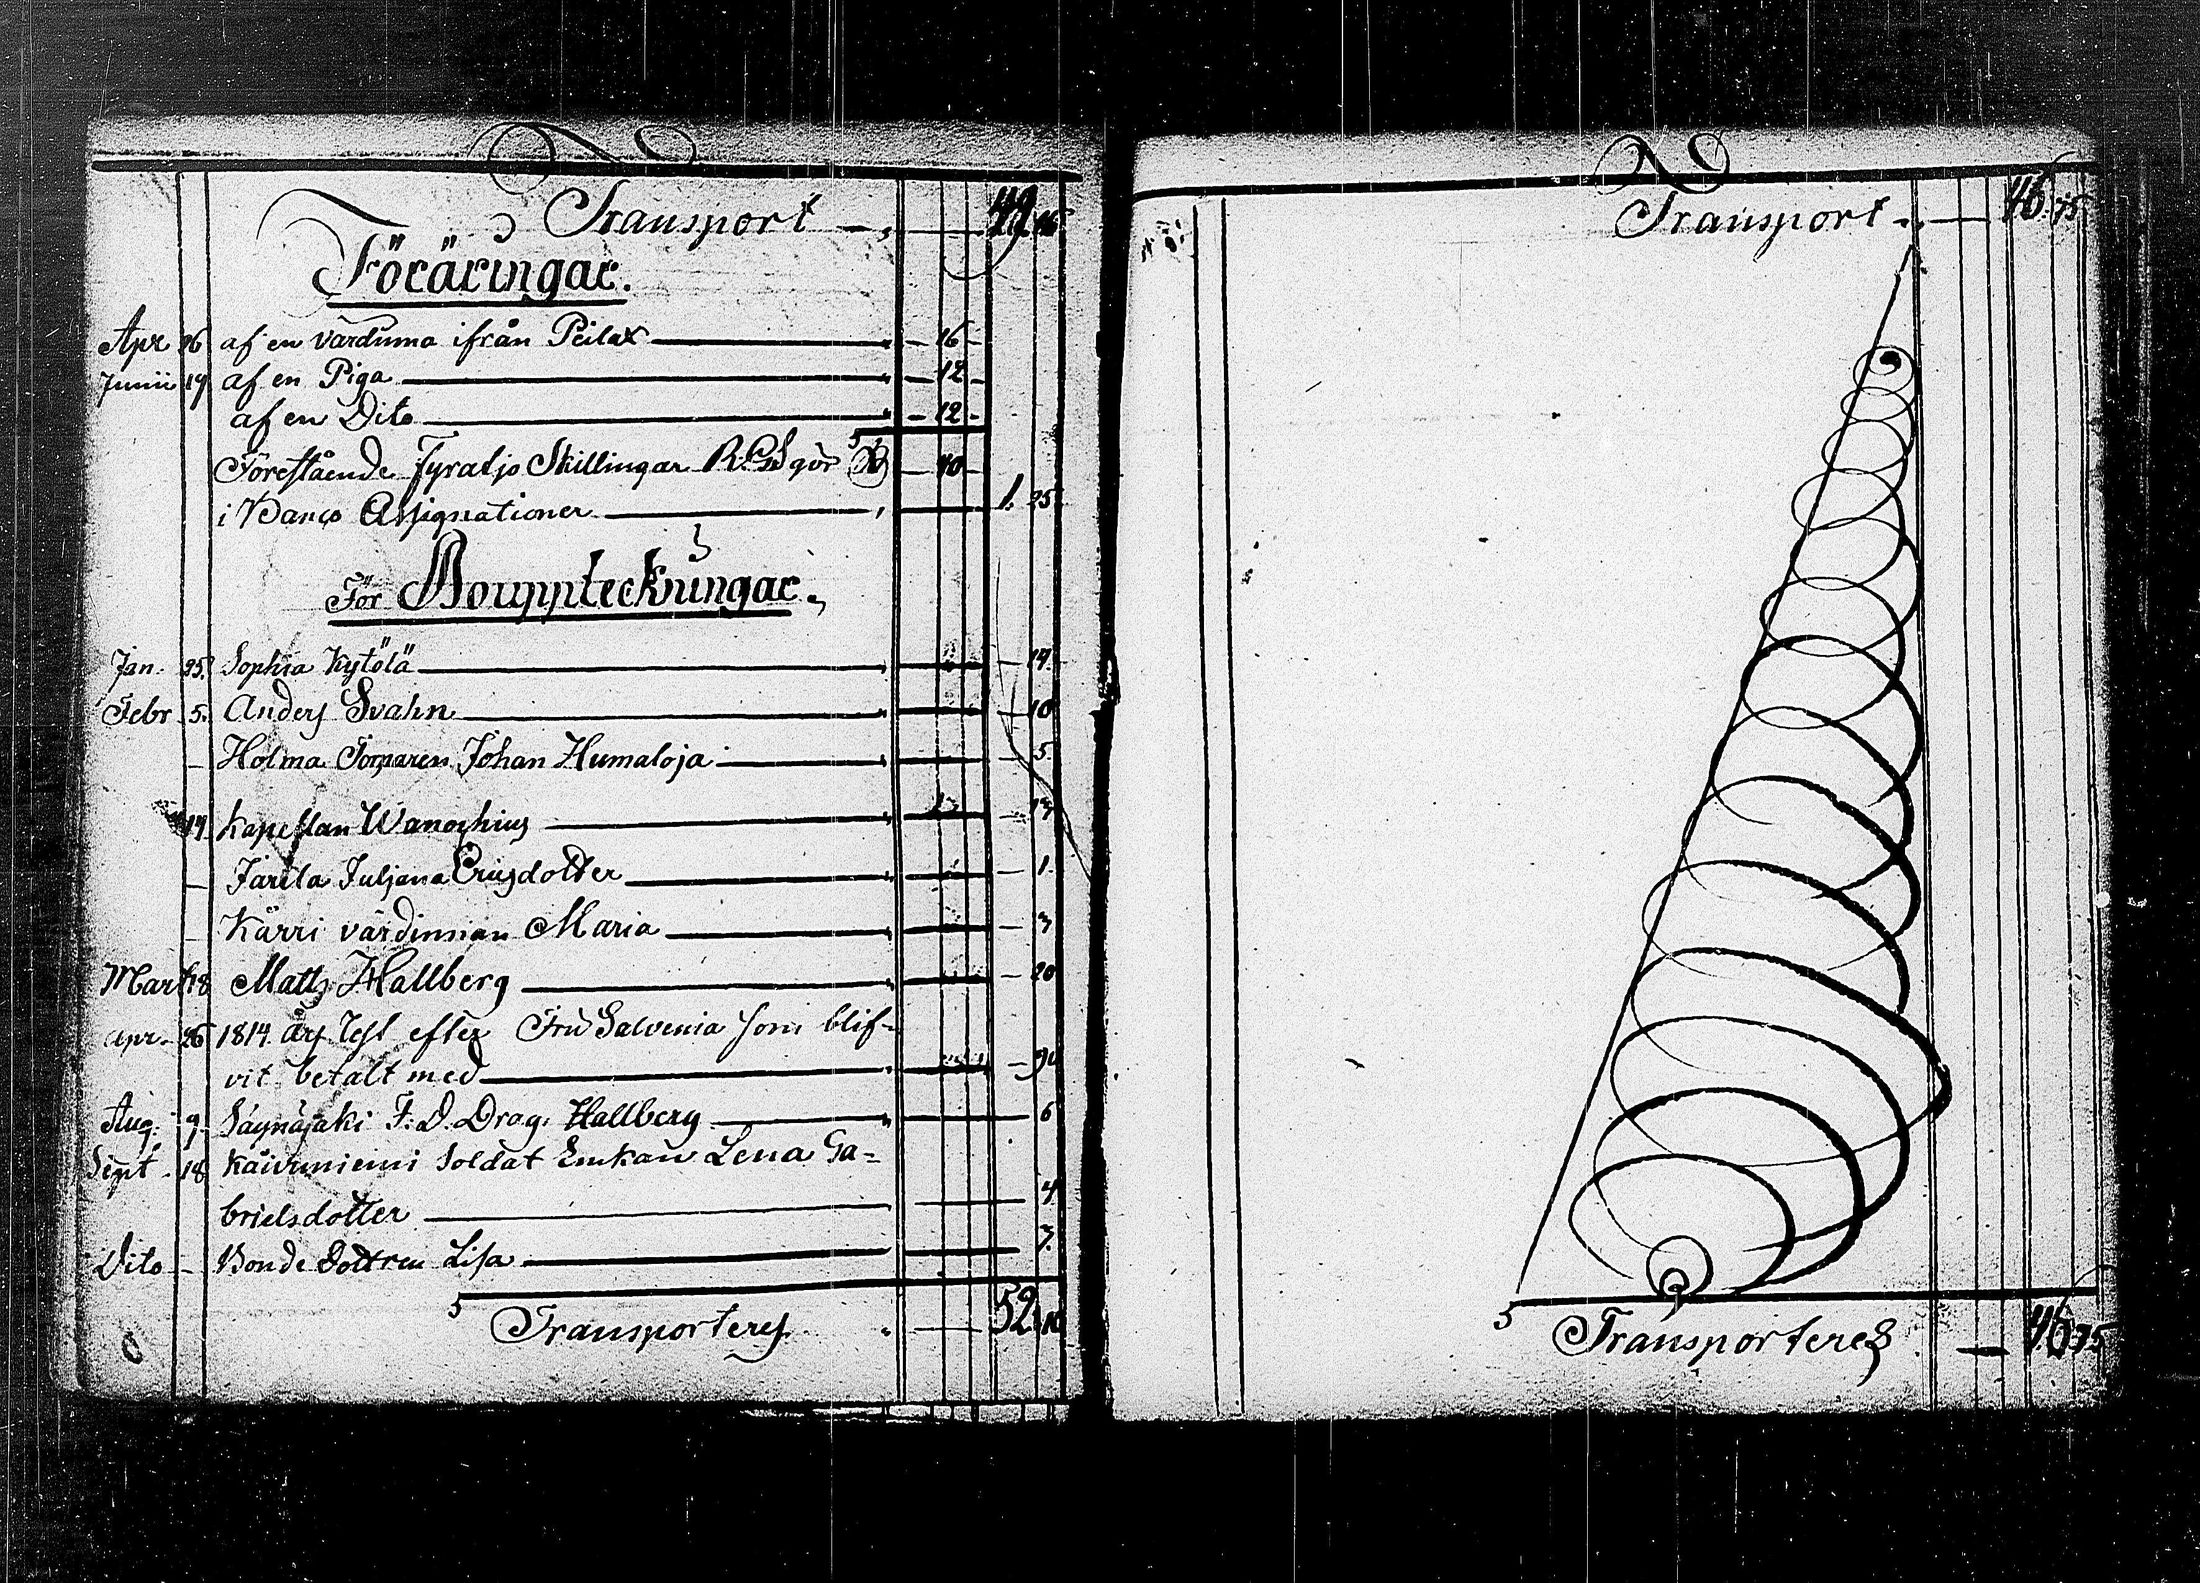 Transport 49. 16
Föräringar.
Apr 26 af en värdinna ifrån Peilax 16
Junii 19 af en Piga 12
af en Dito 12
Förestående Fyratjo Skillingar R.Gs gör 40
i Banco Assignationer 1. 25
För Bouppteckningar.
Jan. 25. Sophia Kytölä 14
Febr 5. Anders Svahn 10
Holma Torparen Johan Humaloja 5
17 Kapellan Wanochius
Jarila Juljana Ericsdotter 1.
Kärri värdinnan Maria 3
Mart 18 Matts Hallberg 20
Apr. 26 1814 års Test efter Fru Salvenia som blif-
vit betalt med
Aug. 9. Säynäjäki F. D. Drag. Hallberg 6
Sept. 18 Kaivuniemi Soldat Enkan Lena Ga-
brielsdotter 4
Dito Bonde Dottren Lisa 3.
Transporteres 52. 10
Transport 46. 75
Transporteres 46. 75